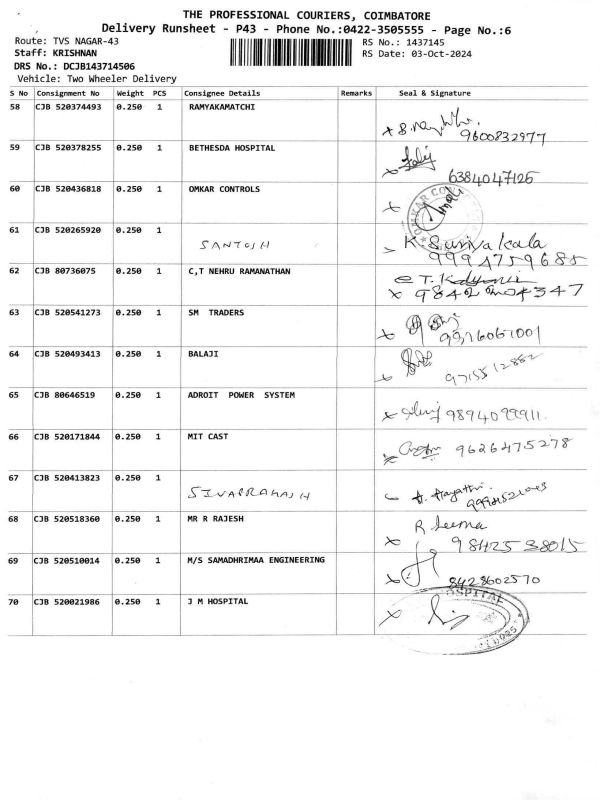 THE PROFESSIONAL COURIERS, COIMBATORE
Delivery Runsheet - P43 - Phone No.:0422-3505555 - Page No.:6
Route: TVS NAGAR-43 RS No.: 1437145
Staff: KRISHNAN RS Date: 03-Oct-2024
DRS No.: DCJB143714506
Vehicle: Two Wheeler Delivery
S No Consignment No Weight PCS Consignee Details Remarks Seal & Signature
58 CJB 520374493 0.250 1 RAMYAKAMATCHI
9600832977
59 CJB 520378255 0.250 1 BETHESDA HOSPITAL
6384047125
60 CJB 520436818 0.250 1 OMKAR CONTROLS
OMKAR
61 CJB 520265920 0.250 1
SANTOSH K Suriya kala
9994759685
62 CJB 80736075 0.250 1 C,T NEHRU RAMANATHAN
63 CJB 520541273 0.250 1 SM TRADERS
64 CJB 520493413 0.250 1 BALAJI
9715512882
65 CJB 80646519 0.250 1 ADROIT POWER SYSTEM
66 CJB 520171844 0.250 1 MIT CAST
9626475278
67 CJB 520413823 0.250 1
SIVAPRAKASH
68 CJB 520518360 0.250 1 MR R RAJESH
R Seema
9842538015
69 CJB 520510014 0.250 1 M/S SAMADHRIMAA ENGINEERING
8428602570
70 CJB 520021986 0.250 1 J M HOSPITAL
HOSPITAL